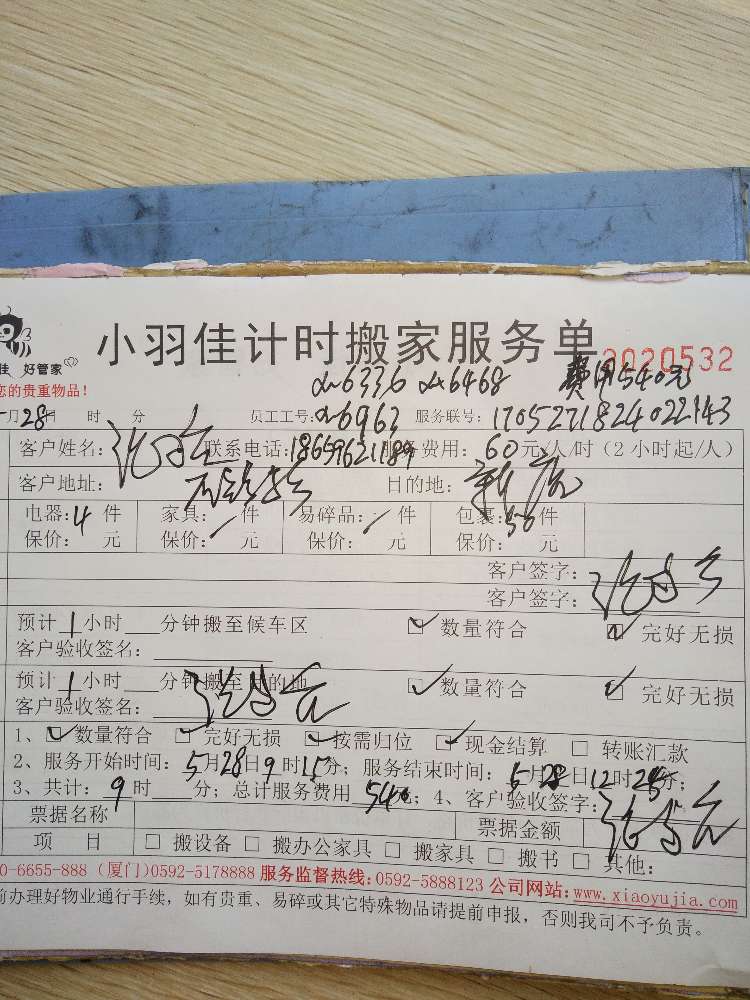 小羽佳计时搬家服务单 2020532
佳 好管家
您的贵重物品！
6336 6468 费用540元
月28日 时 分 员工工号：6963 服务联号：1705271824022143
客户姓名： 联系电话：18659621189 服务费用：60元/人/时（2小时起/人）
客户地址： 目的地：
电器：4件 家具： 件 易碎品： 件 包裹：50件
保价： 元 保价： 元 保价： 元 保价： 元
客户签字：
客户签字：
预计1小时 分钟搬至候车区 数量符合 完好无损
客户验收签名：
预计1小时 分钟搬至目的地 数量符合 完好无损
客户验收签名：
1、数量符合 完好无损 按需归位 现金结算 转账汇款
2、服务开始时间：5月28日9时15分；服务结束时间：5月28日12时 分；
3、共计：9时 分；总计服务费用540元；4、客户验收签字：
票据名称 票据金额
项 目 搬设备 搬办公家具 搬家具 搬书 其他：
0-6655-888 (厦门)0592-5178888 服务监督热线：0592-5888123 公司网站：www.xiaoyujia.com
前办理好物业通行手续，如有贵重、易碎或其它特殊物品请提前申报，否则我司不予负责。